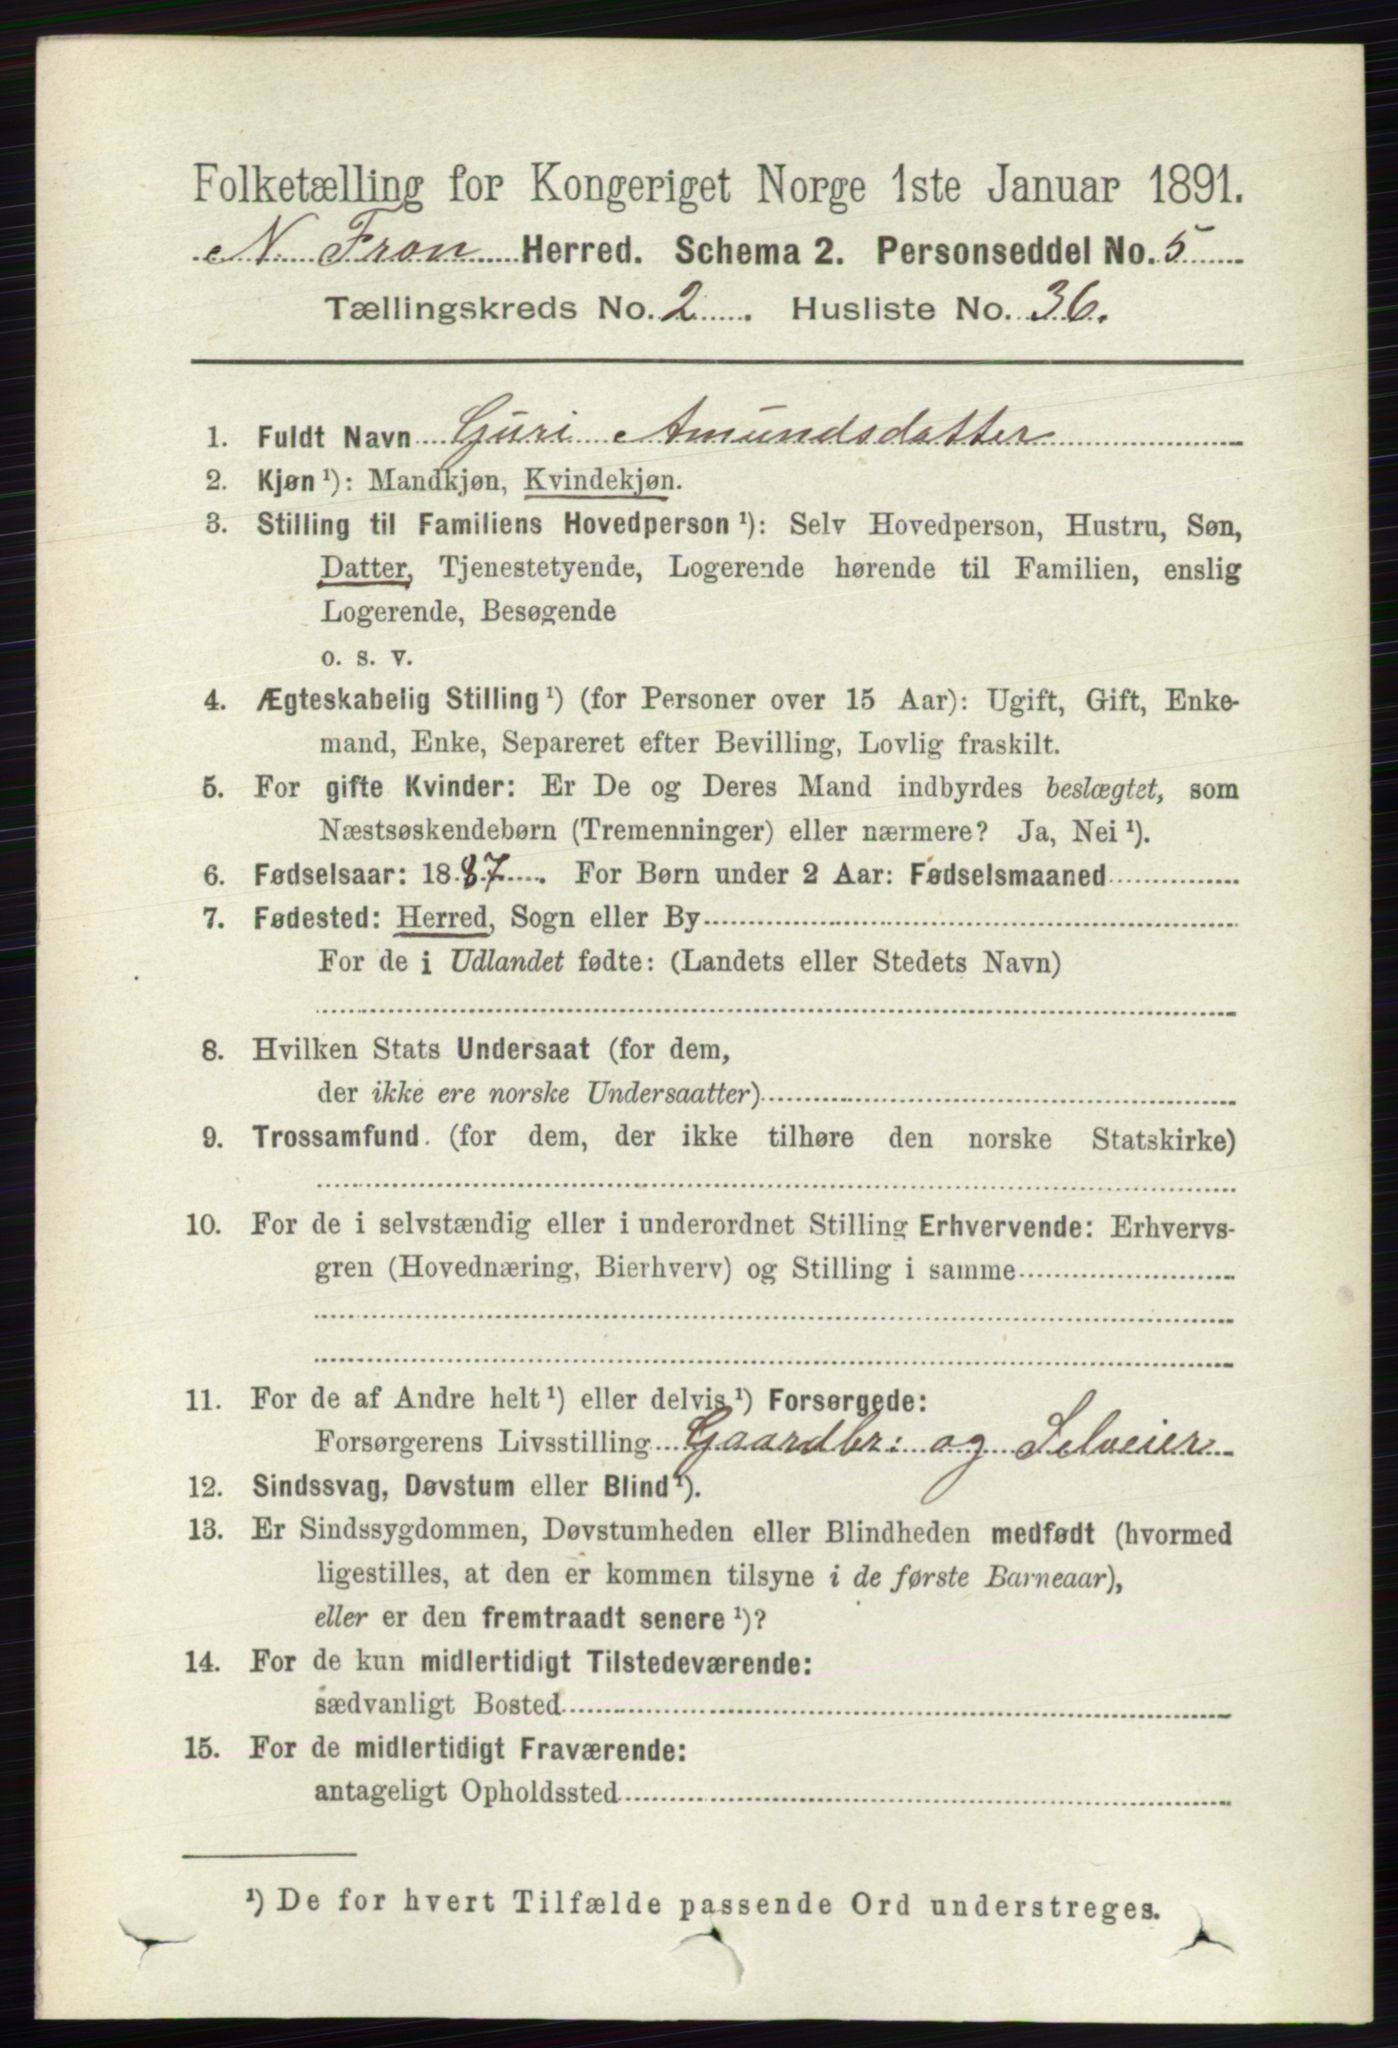 Folketælling for Kongeriget Norge 1ste Januar 1891.
N. Fron Herred. Schema 2. Personseddel No. 5
Tællingskreds No. 2. Husliste No. 36.
1. Fuldt Navn Guri Amundsdatter
2. Kjøn ¹): Mandkjøn, Kvindekjøn.
3. Stilling til Familiens Hovedperson ¹): Selv Hovedperson, Hustru, Søn,
Datter, Tjenestetyende, Logerende hørende til Familien, enslig
Logerende, Besøgende
o. s. v.
4. Ægteskabelig Stilling ¹) (for Personer over 15 Aar): Ugift, Gift, Enke-
mand, Enke, Separeret efter Bevilling, Lovlig fraskilt.
5. For gifte Kvinder: Er De og Deres Mand indbyrdes beslægtet, som
Næstsøskendebørn (Tremenninger) eller nærmere? Ja, Nei ¹).
6. Fødselsaar: 1887. For Børn under 2 Aar: Fødselsmaaned
7. Fødested: Herred, Sogn eller By
For de i Udlandet fødte: (Landets eller Stedets Navn)
8. Hvilken Stats Undersaat (for dem,
der ikke ere norske Undersaatter)
9. Trossamfund. (for dem, der ikke tilhøre den norske Statskirke)
10. For de i selvstændig eller i underordnet Stilling Erhvervende: Erhvervs-
gren (Hovednæring, Bierhverv) og Stilling i samme
11. For de af Andre helt ¹) eller delvis ¹) Forsørgede:
Forsørgerens Livsstilling Gaardbr: og Selveier
12. Sindssvag, Døvstum eller Blind ¹).
13. Er Sindssygdommen, Døvstumheden eller Blindheden medfødt (hvormed
ligestilles, at den er kommen tilsyne i de første Barneaar),
eller er den fremtraadt senere ¹)?
14. For de kun midlertidigt Tilstedeværende:
sædvanligt Bosted
15. For de midlertidigt Fraværende:
antageligt Opholdssted
¹) De for hvert Tilfælde passende Ord understreges.